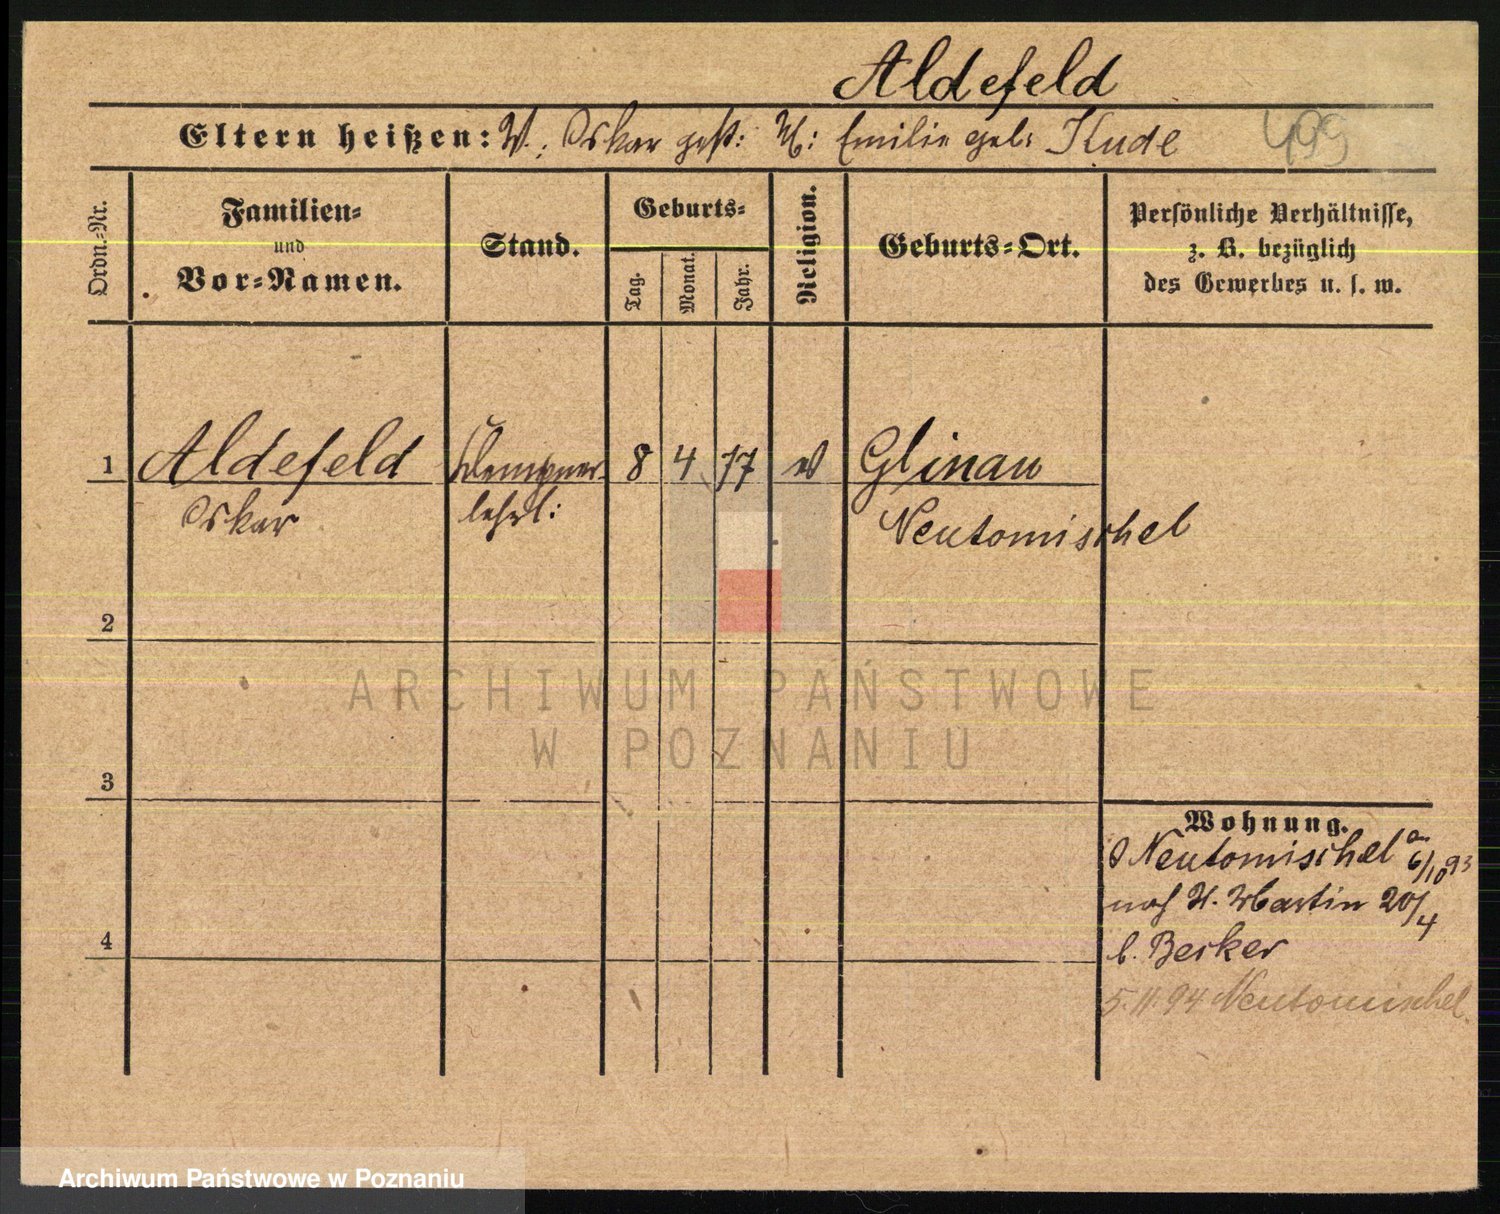 Aldefeld
Eltern heißen: V: Oskar gest: M: Emilie geb: Kude 499
Ordn.-Nr.
Familien-
und
Vor-Namen.
Stand.
Geburts-
Tag.
Monat.
Jahr.
Religion.
Geburts-Ort.
Persönliche Verhältnisse,
z. B. bezüglich
des Gewerbes u. s. w.
1 Aldefeld Klempner- 8 4 77 ev Glinau
Oskar lehrl: Neutomischel
2
3
4
Wohnung.
Neutomischel 6/10 93
nach St. Martin 20/4
b. Becker
5.11.94 Neutomischel.
ARCHIWUM PAŃSTWOWE
W POZNANIU
Archiwum Państwowe w Poznaniu